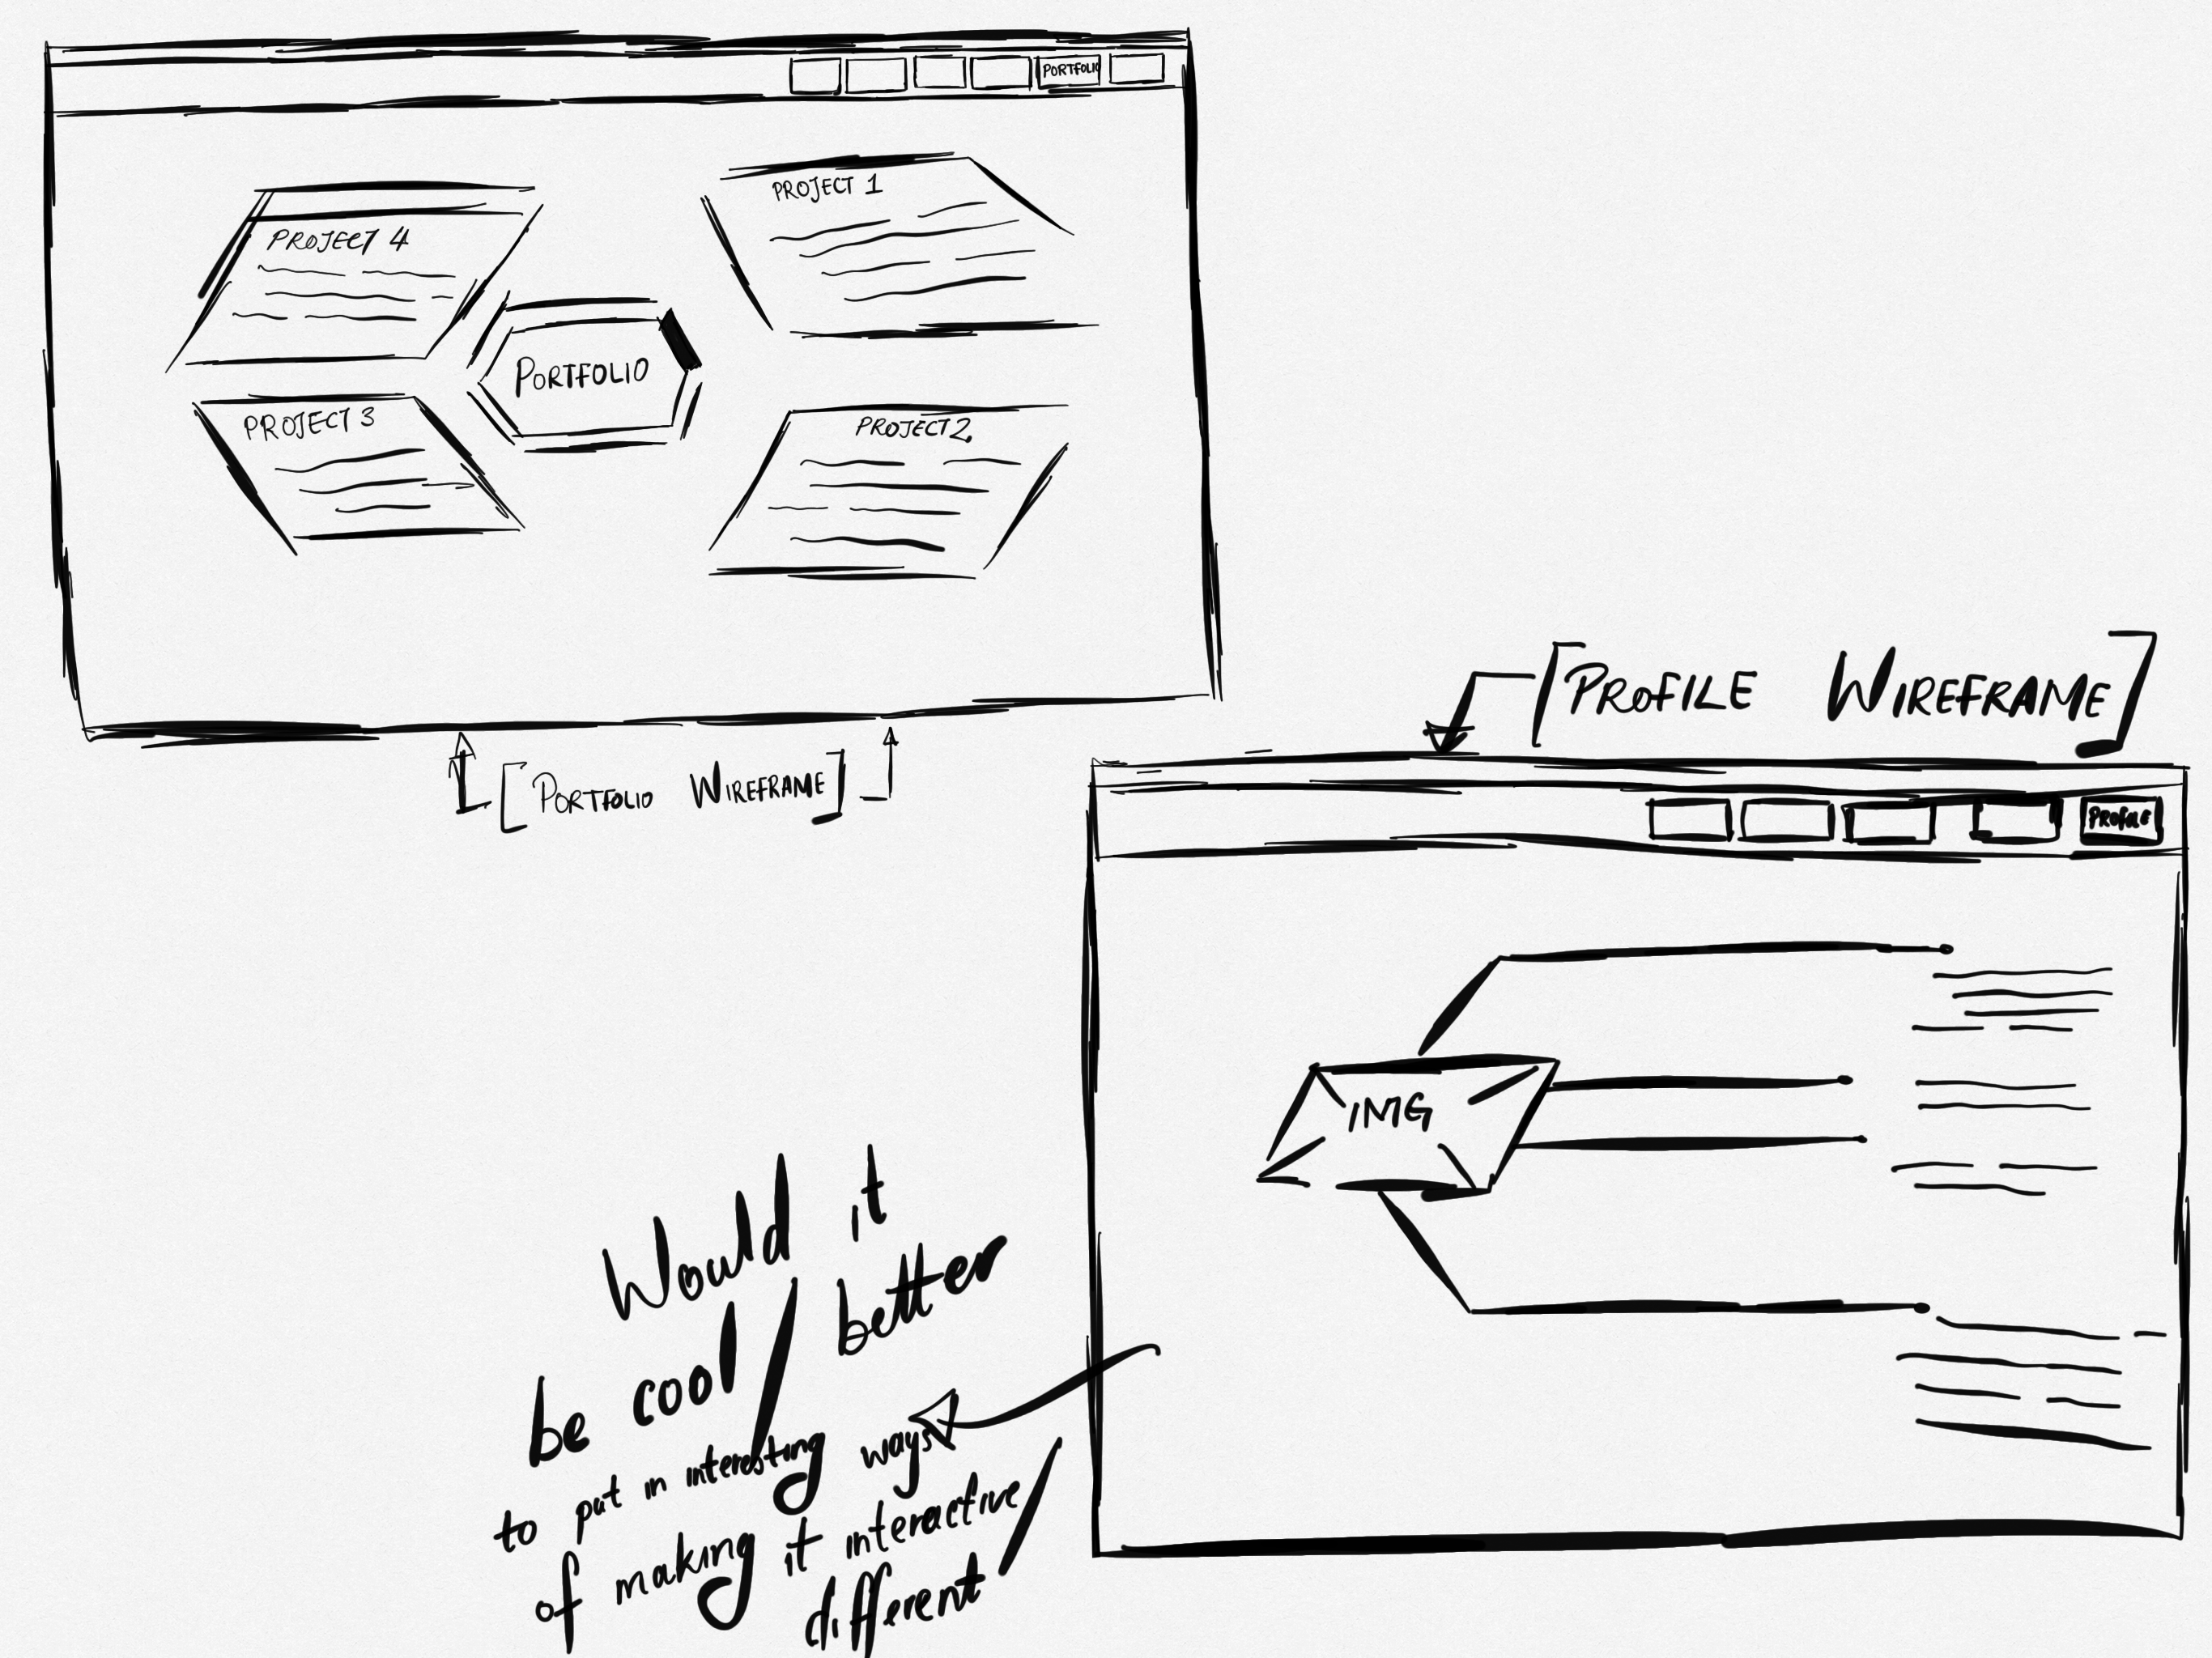 PORTFOLIO
PROJECT 1
PROJECT 4
PORTFOLIO
PROJECT 3
PROJECT 2
[PORTFOLIO WIREFRAME]
[PROFILE WIREFRAME]
PROFILE
IMG
Would it
be cool / better
to put in interesting ways
of making it interactive /
different